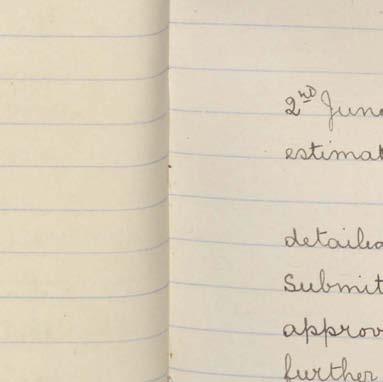 2nd June
estimat
detailed
Submit
approv
further